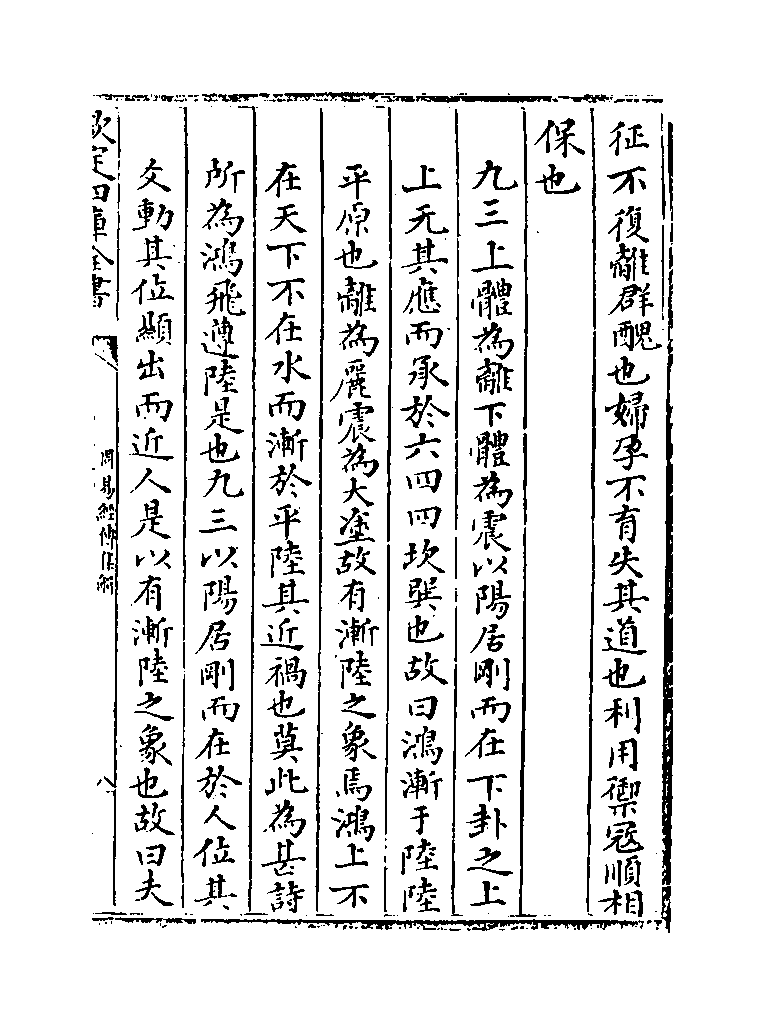 征不復離群醜也婦孕不育失其道也利用禦冦順相
保也
九三上體為離下體為震以陽居剛而在下卦之上
上无其應而承於六四四坎巽也故曰鴻漸于陸陸
平原也離為麗震為大塗故有漸陸之象焉鴻上不
在天下不在水而漸於平陸其近禍也莫此為甚詩
所為鴻飛遵陸是也九三以陽居剛而在於人位其
爻動其位顯出而近人是以有漸陸之象也故曰夫
欽定四庫全書
周易經傳集解
八